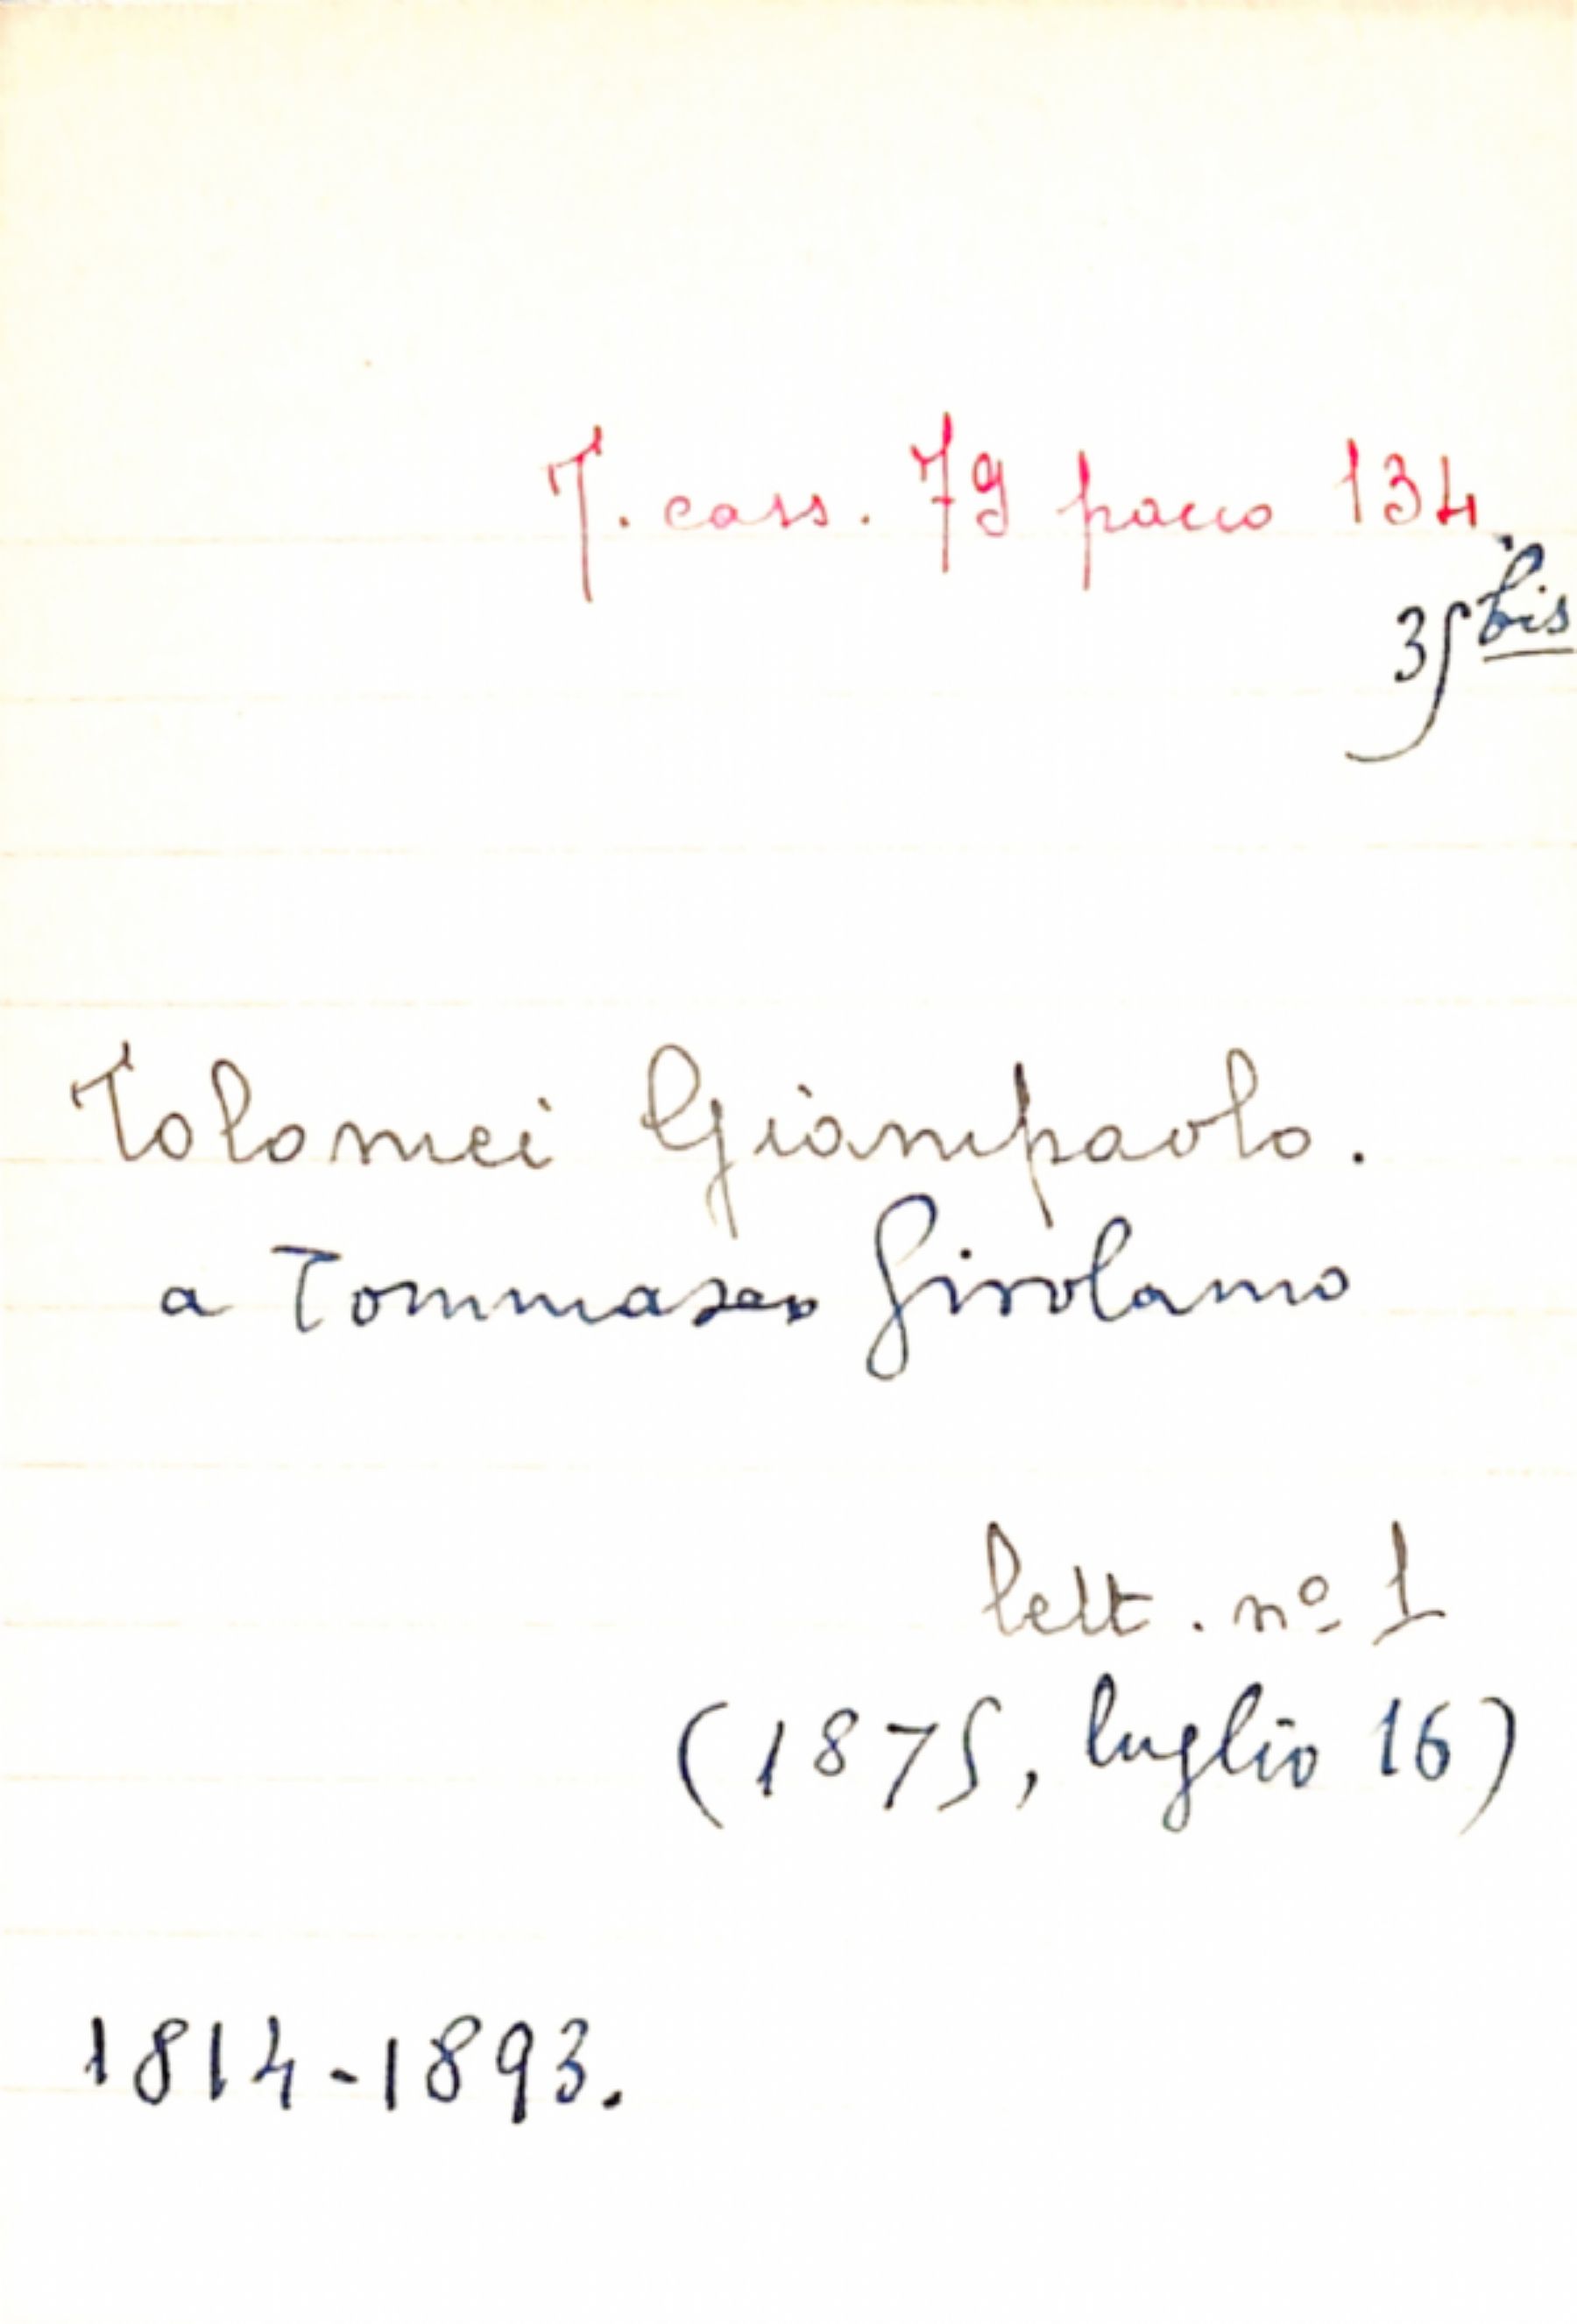 T. cass. 79 pacco 134.
35 bis
Tolomei Giampaolo.
a Tommaseo Girolamo
lett. nº 1
(1875, luglio 16)
1814-1893.